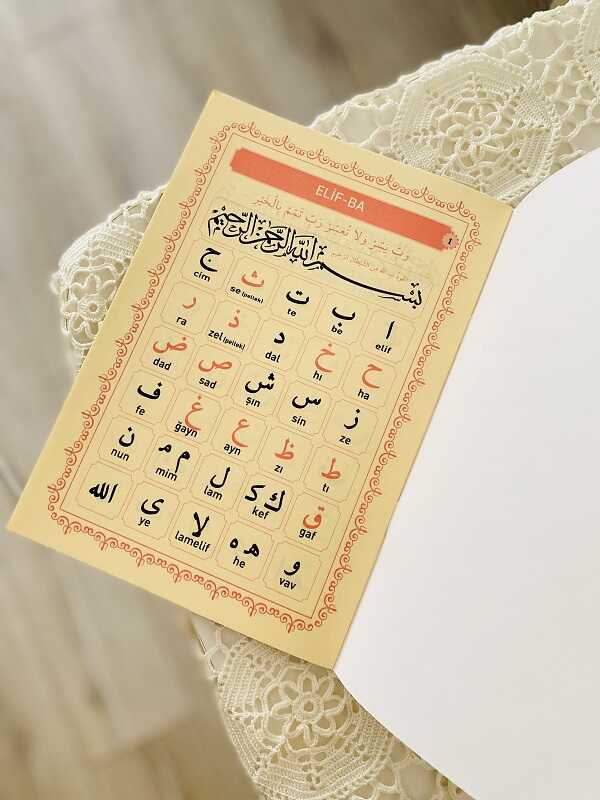 ELİF-BA
1
رَبِّ يَسِّرْ وَلَا تُعَسِّرْ رَبِّ تَمِّمْ بِالْخَيْرِ
أعوذ بالله من الشيطان الرجيم
بسم الله الرحمن الرحيم
ا ب ت ث ج
elif be te se (peltek) cim
ح خ د ذ ر
ha hı dal zel (peltek) ra
ز س ش ص ض
ze sin şın sad dad
ط ظ ع غ ف
tı zı ayn ğayn fe
ق ك كـ ل م مـ ن
gaf kef lam mim nun
و هـ ه لا ى الله
vav he lamelif ye